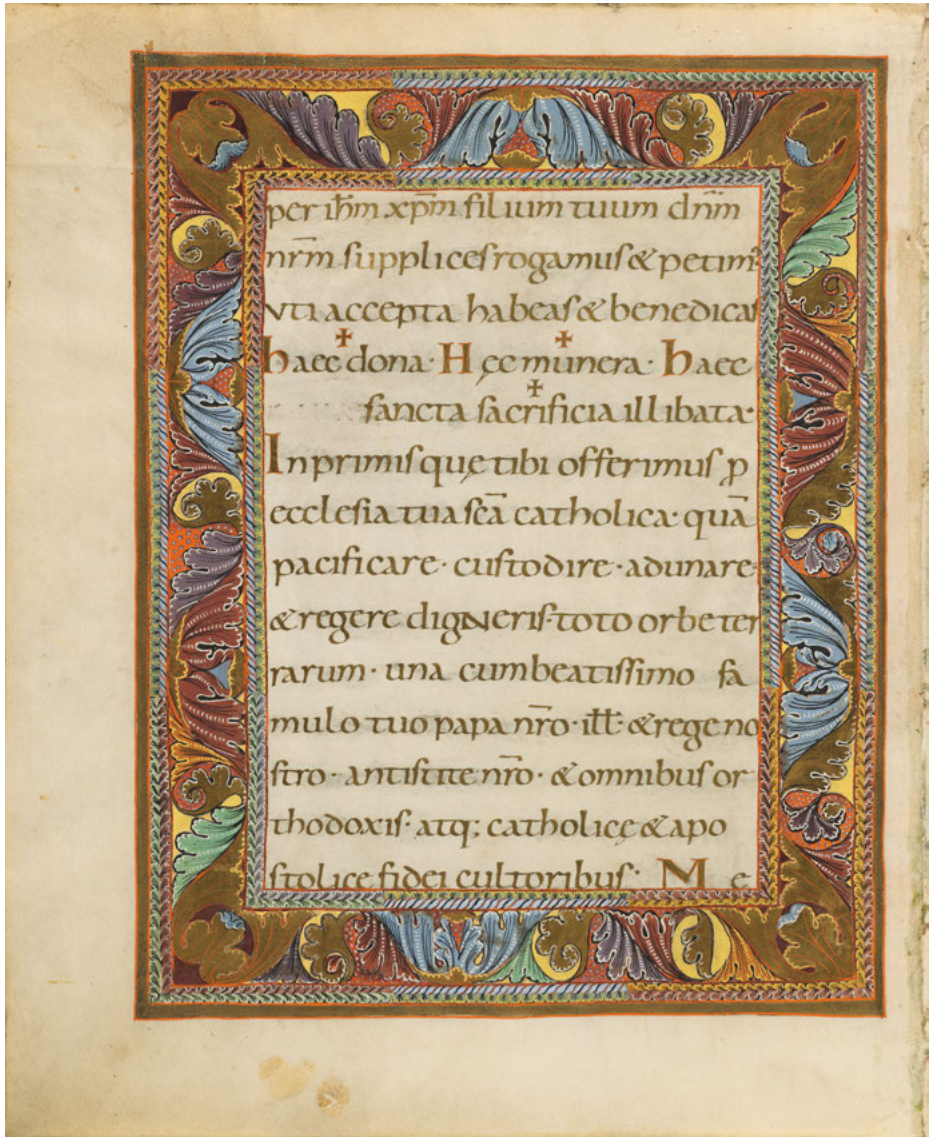 per ih̅m xp̅m filium tuum dn̅m
nr̅m supplices rogamus & petim᷒
vti accepta habeas & benedicas
haec dona· Hęc munera· haec
sancta sacrificia illibata·
In primis quę tibi offerimus ꝓ
ecclesia tua sc̅a catholica· quā
pacificare· custodire· adunare·
& regere digneris· toto orbe ter
rarum· una cum beatissimo fa
mulo tuo papa nr̅o· ill̅· & rege no
stro· antistite nr̅o· & omnibus or
thodoxis· atq; catholicę & apo
stolice fidei cultoribus· Me